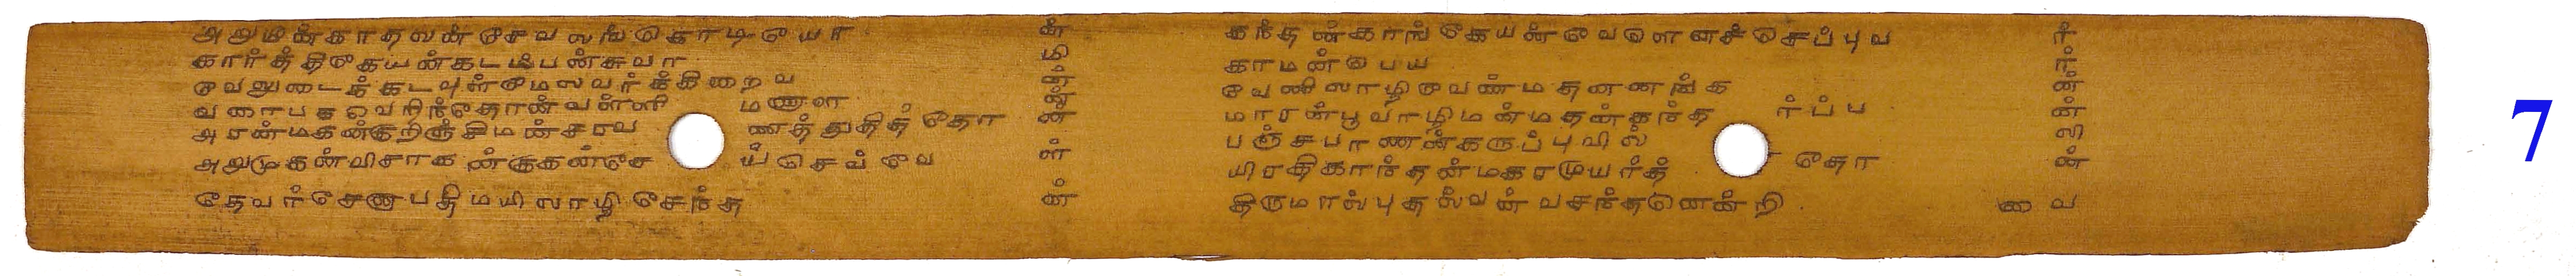 அறுமுகன்காதலன் சேவலங்கொடியோ ன்
கார்த்திகேயன்கடம்பன்சுவா மி
வேலுடைக்கடவுள்மேலவர்க்கிறைவ ன்
வரைபகவெறிந்தோன்வள்ளி மணாள ன்
அரன்மகன்குறிஞ்சிமன்சரவ ணத்துதித்தோ ன்
அறுமுகன்விசாகன்குகன்சே ய்செவ்வே ள்
தேவர்சேனாபதிமயிலாழிசேந்த ன்
கந்தன்காங்கேயன்வேளெனச்செப்புவ ர்
காமன்பெய ர்
வேனிலாழிவேண்மதனனங்க ன்
மாரன்பூவாழிமன்மதன்கந்த ர்ப்ப ன்
பஞ்சபாணன்கருப்புவில் லி
யிரதிகாந்தன்மகரமுயர்த் தோ ன்
திருமால்புதல்வன்வசந்தனென்றி வை